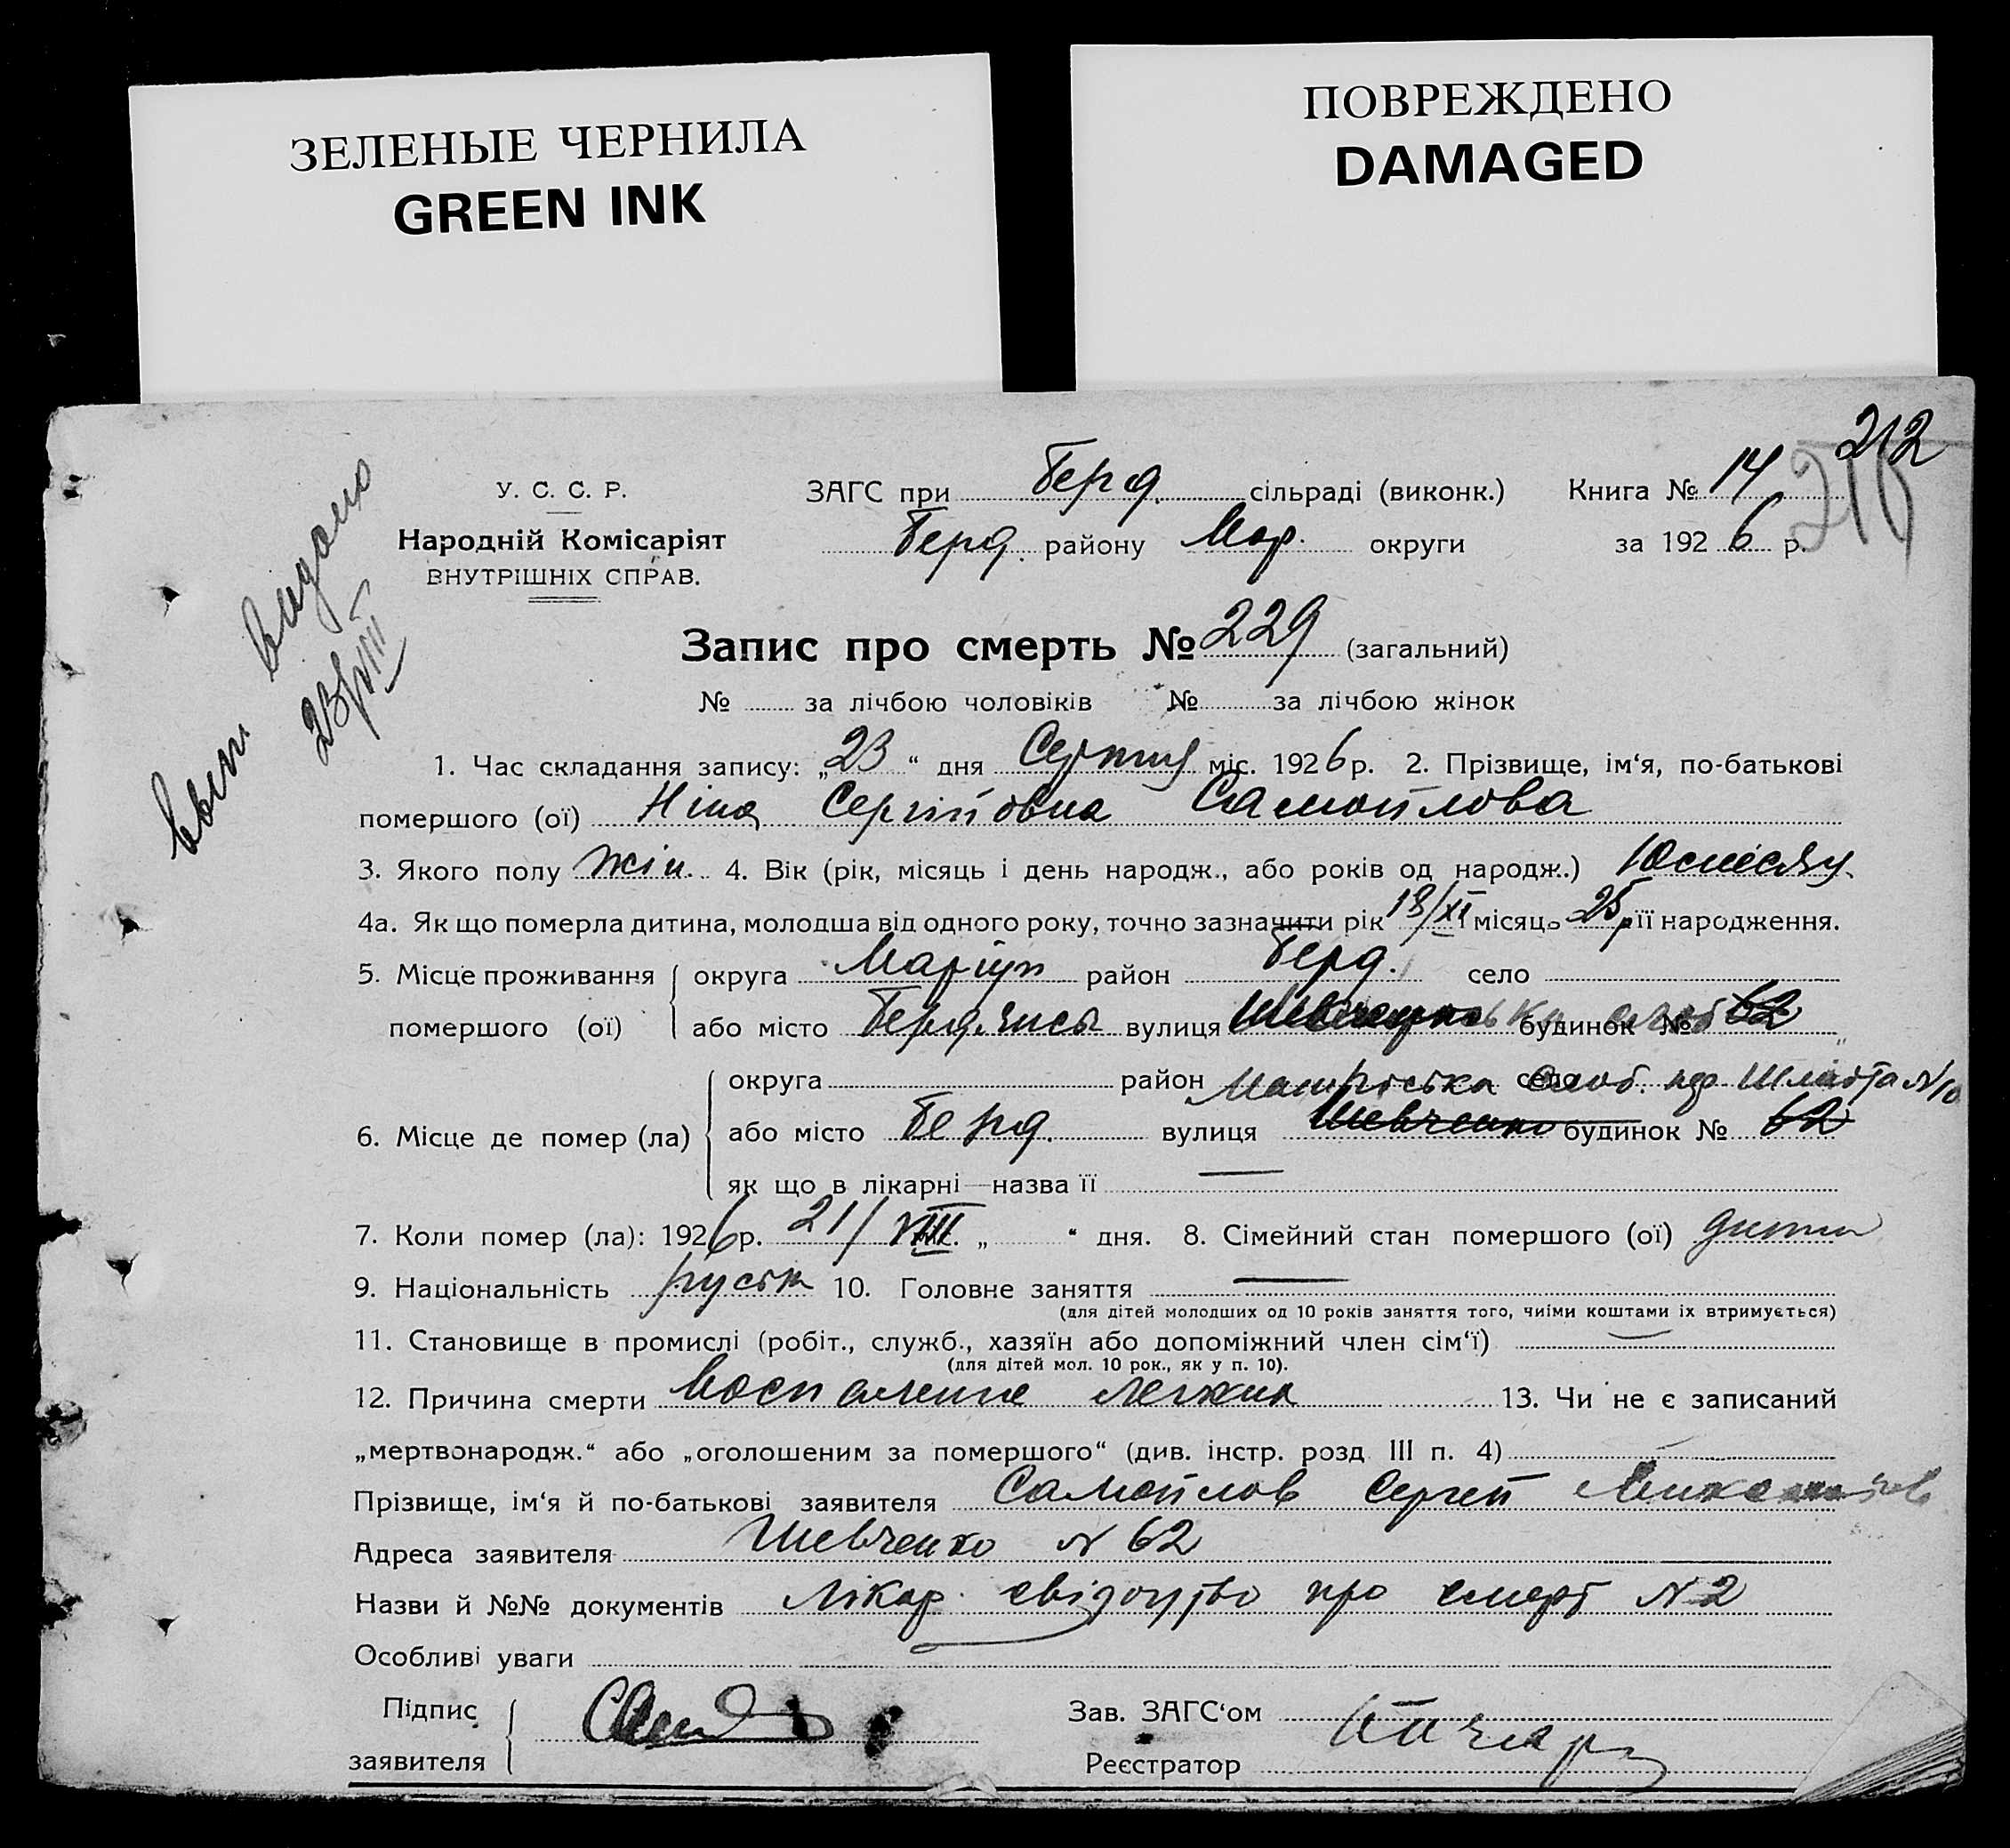 ЗЕЛЕНЫЕ ЧЕРНИЛА
GREEN INK
ПОВРЕЖДЕНО
DAMAGED
212
У. С. С. Р.
Народній Комісаріят
ВНУТРІШНІХ СПРАВ.
ЗАГС при Берд. сільраді (виконк.) Книга № 14
Берд. району Мар. округи за 1926 р.
вып. видано
23/VIII
Запис про смерть № 229 (загальний)
№ за лічбою чоловіків № за лічбою жінок
1. Час складання запису: „23“ дня Серпня міс. 1926 р. 2. Прізвище, ім‘я, по-батькові
помершого (ої) Ніна Сергіївна Самойлова
3. Якого полу жін. 4. Вік (рік, місяць і день народж., або років од народж.) 10 місяц.
4а. Як що померла дитина, молодша від одного року, точно зазначити рік 18/XI місяць 25 р її народження.
5. Місце проживання округа Маріуп район Берд. село
помершого (ої) або місто Бердянськ вулиця будинок № 62
округа район село Матроська слоб. N 10
6. Місце де помер (ла) або місто Берд. вулиця Шевченко будинок № 62
як що в лікарні—назва її —
7. Коли помер (ла): 1926 р. 21/VIII „ “ дня. 8. Сімейний стан помершого (ої) дитина
9. Національність руськ 10. Головне заняття —
(для дітей молодших од 10 років заняття того, чиїми коштами їх втримується)
11. Становище в промислі (робіт., служб., хазяїн або допоміжний член сім‘ї) —
(для дітей мол. 10 рок., як у п. 10).
12. Причина смерти воспаление легких 13. Чи не є записаний
„мертвонародж.“ або „оголошеним за помершого“ (див. інстр. розд III п. 4)
Прізвище, ім‘я й по-батькові заявителя Самойлов Сергей
Адреса заявителя Шевченко N 62
Назви й №№ документів Лікар. свідоцтво про смерть N 2
Особливі уваги
Підпис
заявителя
Зав. ЗАГС‘ом
Реєстратор